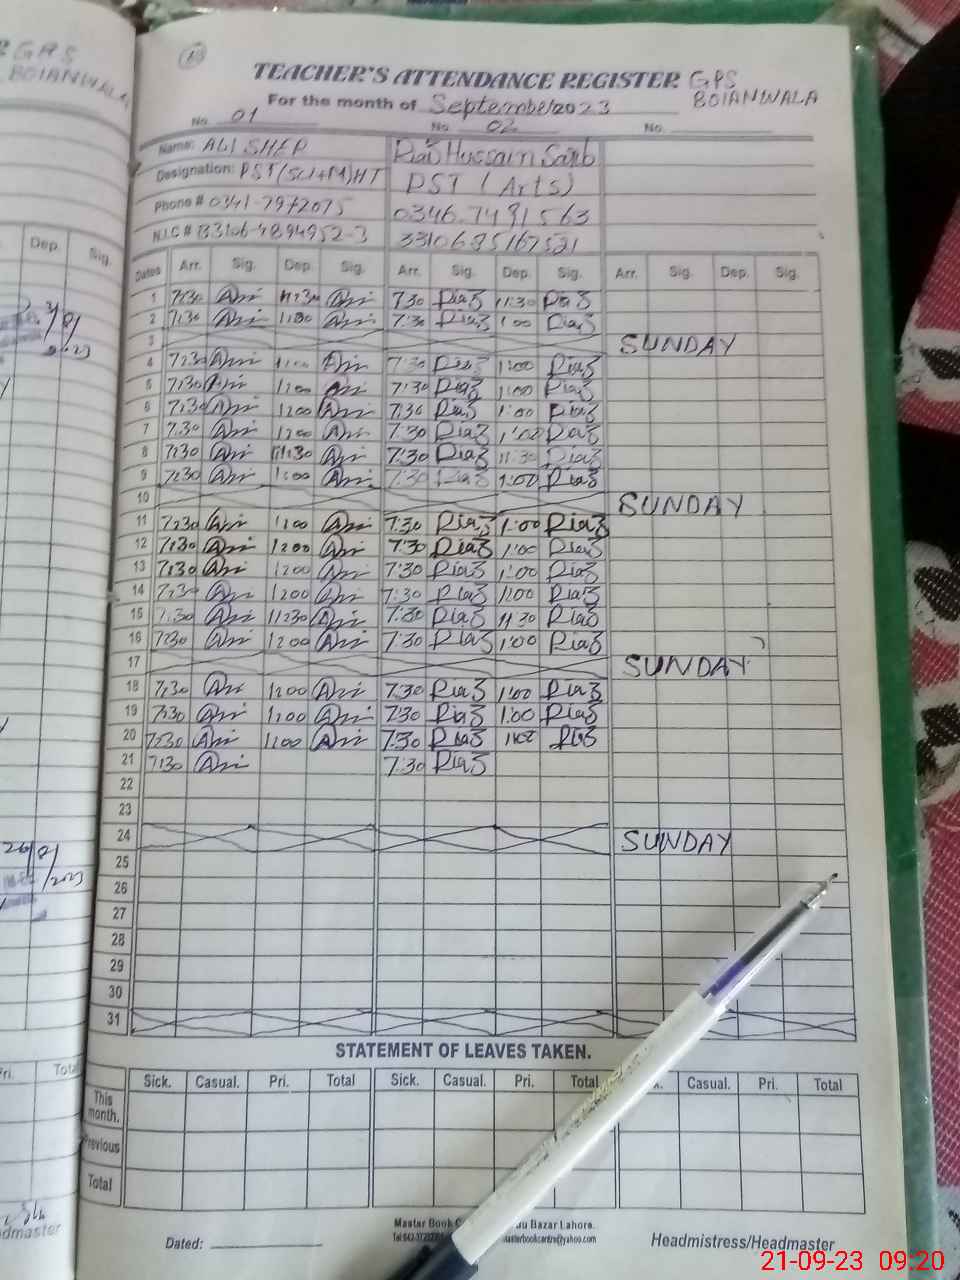 TEACHER'S ATTENDANCE REGISTER GPS
BOIANWALA
For the month of September 2023
No. 01 No. 02 No.
Name: ALI SHER
Designation: PST (Sci+M) HT PST (Arts)
Phone # 0341-7972075 0346-7491563
N.I.C # 33106-4894952-3
Dates Arr. Sig. Dep. Sig. Arr. Sig. Dep. Sig. Arr. Sig. Dep. Sig.
1 7:30 11:30 7:30 Riaz 11:30 Riaz
2 7:30 1:00 7:30 Riaz 1:00 Riaz
3 SUNDAY
4 7:30 1:00 7:30 Riaz 1:00 Riaz
5 7:30 1:00 7:30 Riaz 1:00 Riaz
6 7:30 1:00 7:30 Riaz 1:00 Riaz
7 7:30 1:00 7:30 Riaz 1:00 Riaz
8 7:30 11:30 7:30 Riaz 11:30 Riaz
9 7:30 1:00 7:30 Riaz 1:00 Riaz
10 SUNDAY
11 7:30 1:00 7:30 Riaz 1:00 Riaz
12 7:30 1:00 7:30 Riaz 1:00 Riaz
13 7:30 1:00 7:30 Riaz 1:00 Riaz
14 7:30 1:00 7:30 Riaz 1:00 Riaz
15 7:30 11:30 7:30 Riaz 11:30 Riaz
16 7:30 1:00 7:30 Riaz 1:00 Riaz
17 SUNDAY
18 7:30 1:00 7:30 Riaz 1:00 Riaz
19 7:30 1:00 7:30 Riaz 1:00 Riaz
20 7:30 1:00 7:30 Riaz 1:00 Riaz
21 7:30 7:30 Riaz
22
23
24 SUNDAY
25
26
27
28
29
30
31
STATEMENT OF LEAVES TAKEN.
Sick. Casual. Pri. Total Sick. Casual. Pri. Total Casual. Pri. Total
This month.
Previous
Total
Master Book Bazar Lahore.
Dated: Headmistress/Headmaster
21-09-23 09:20